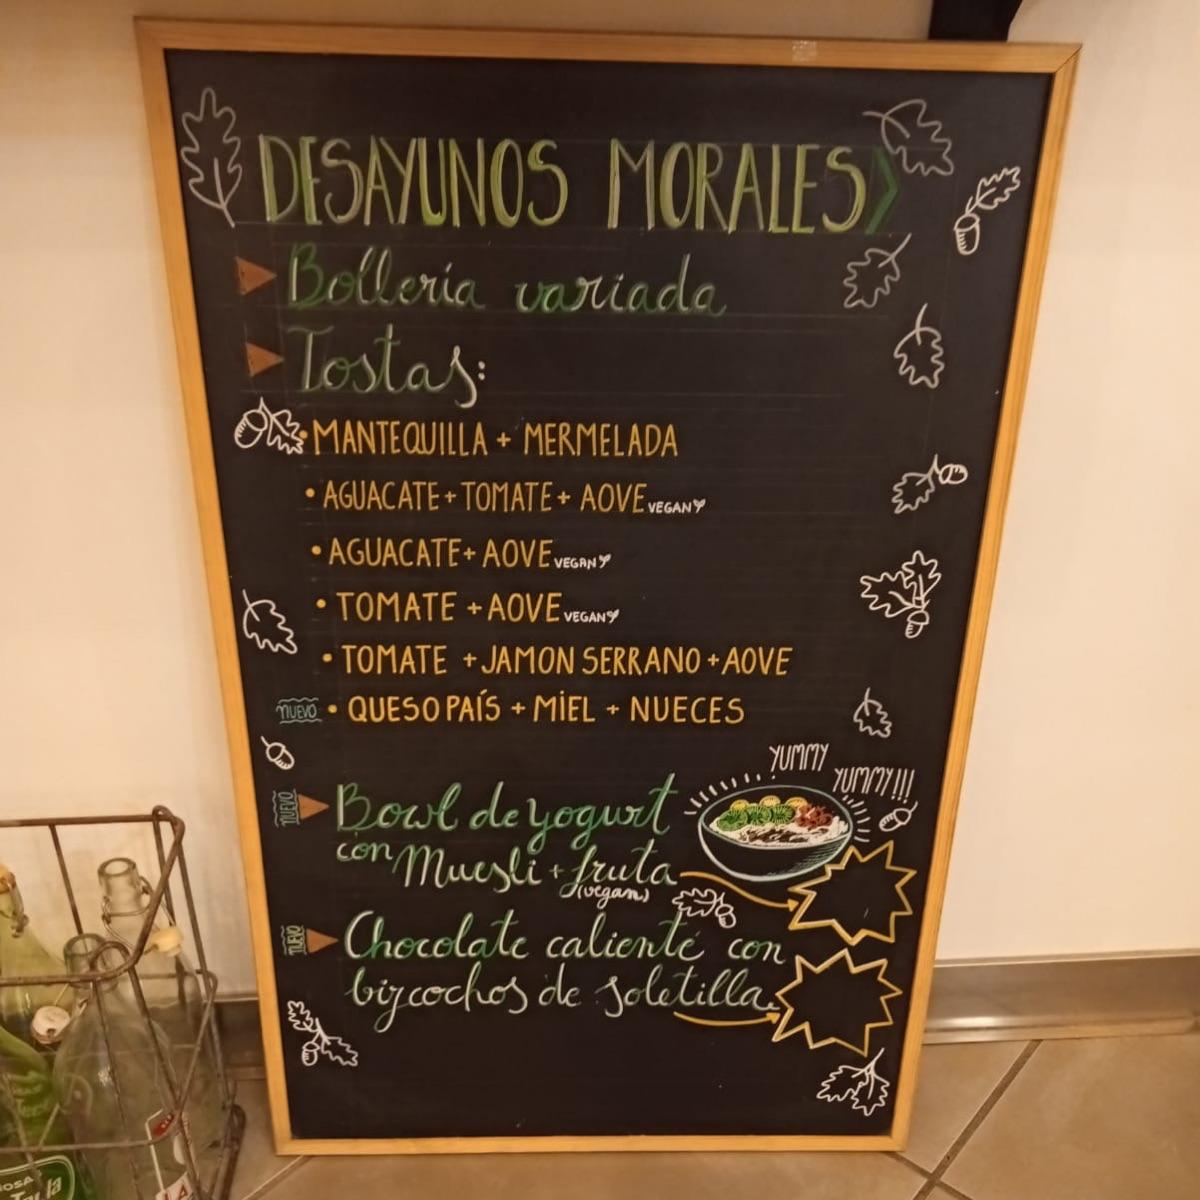 DESAYUNOS MORALES
Bollería variada
Tostas:
• MANTEQUILLA + MERMELADA
• AGUACATE + TOMATE + AOVE VEGAN
• AGUACATE + AOVE VEGAN
• TOMATE + AOVE VEGAN
• TOMATE + JAMON SERRANO + AOVE
NUEVO • QUESO PAÍS + MIEL + NUECES
YUMMY
YUMMY!!!
NUEVO Bowl de yogurt
con Muesli + fruta
(vegan)
NUEVO Chocolate caliente con
bizcochos de soletilla